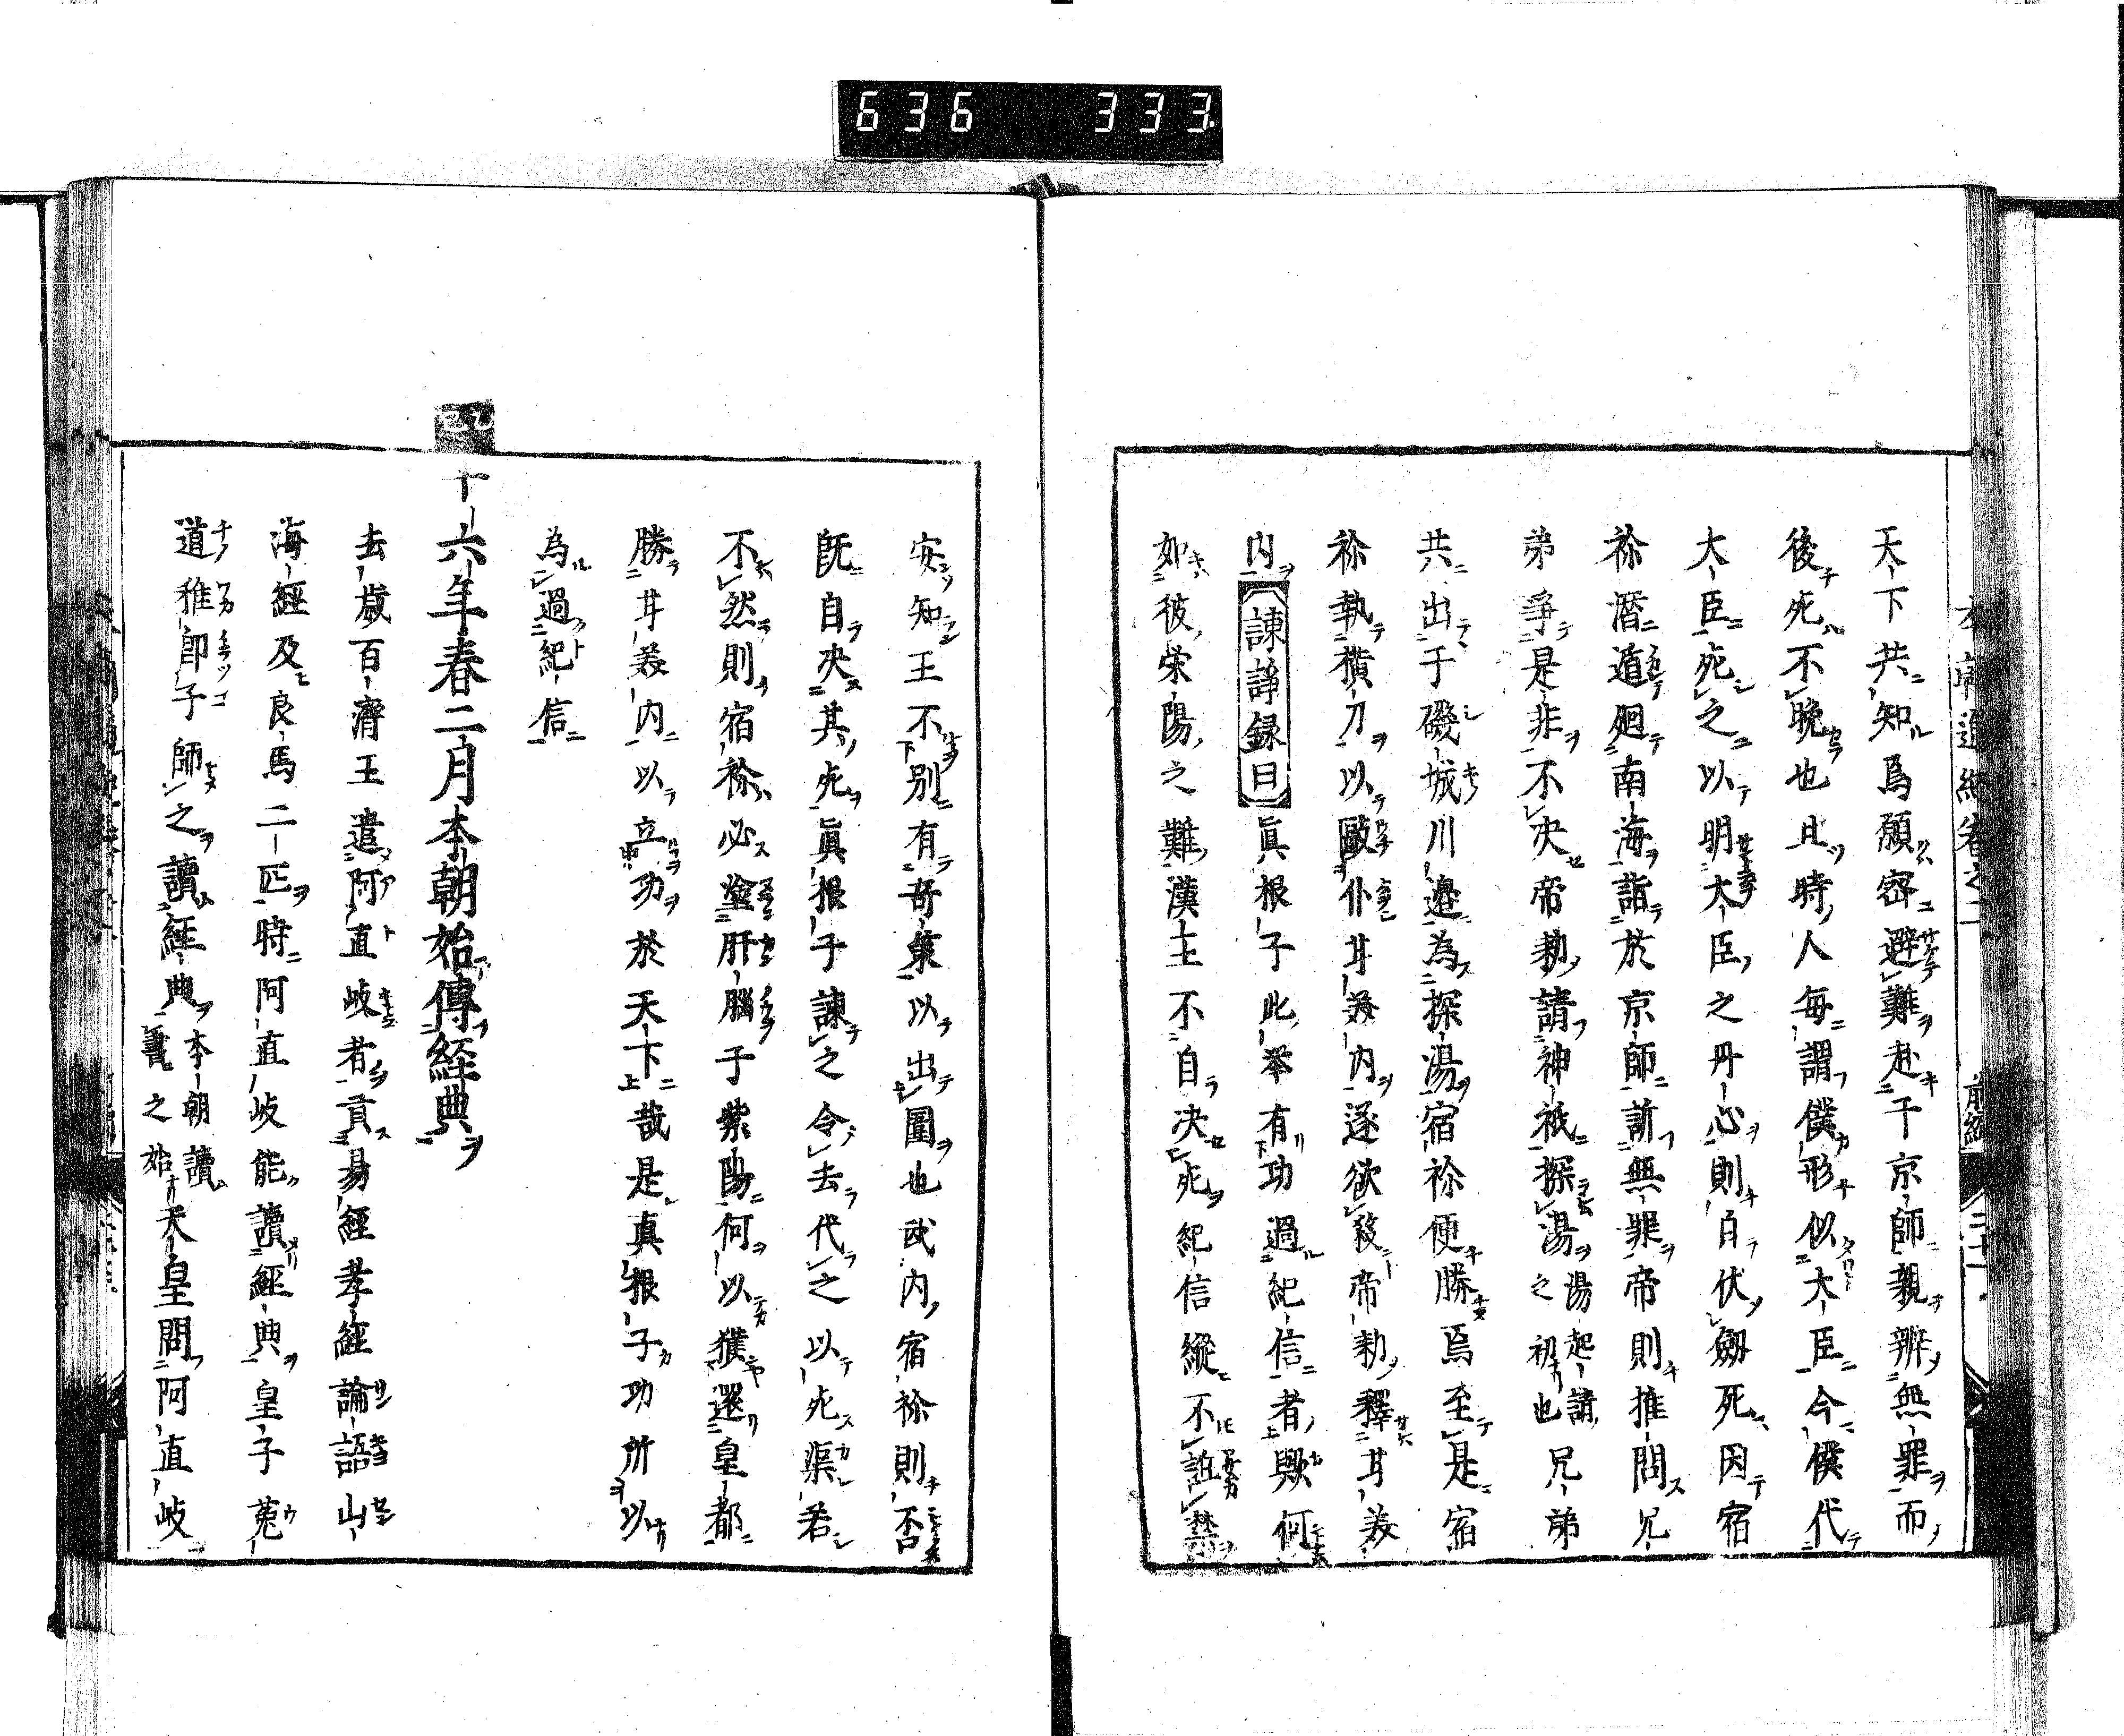 636 333
天下共知焉願密避難赴于京師親辨無罪而
後死不晩也且時人毎謂僕形似大臣今僕代
大臣死之以明大臣之丹心則自伏劔死因宿
祢潛遁廻南海詣於京師訴無罪帝則推問兄
弟爭是非不决帝勅請神祇探湯湯起請之初也兄弟
共出于磯城川邉為探湯宿祢便勝焉至是宿
祢執横刀以毆仆甘美内遂欲殺帝勅釋甘美
内諌諍録曰眞根子此挙有功過紀信者歟何
如彼栄陽之難漢主不自决死紀信縱不誑楚
安知王不別有奇策以出圍也武内宿祢則否
既自决其死眞根子諌之令去代之以死渠若
不然則宿祢必塗肝腦于紫陽何以獲還皇都
勝甘美内以立功於天下哉是真根子功所以
為過紀信
己乙
十六年春二月本朝始傳経典
去歳百濟王遣阿直岐者貢易經孝經論語山
海經及良馬二匹時阿直岐能讀經典皇子菟
道稚郎子師之讀経典本朝讀書之始天皇問阿直岐